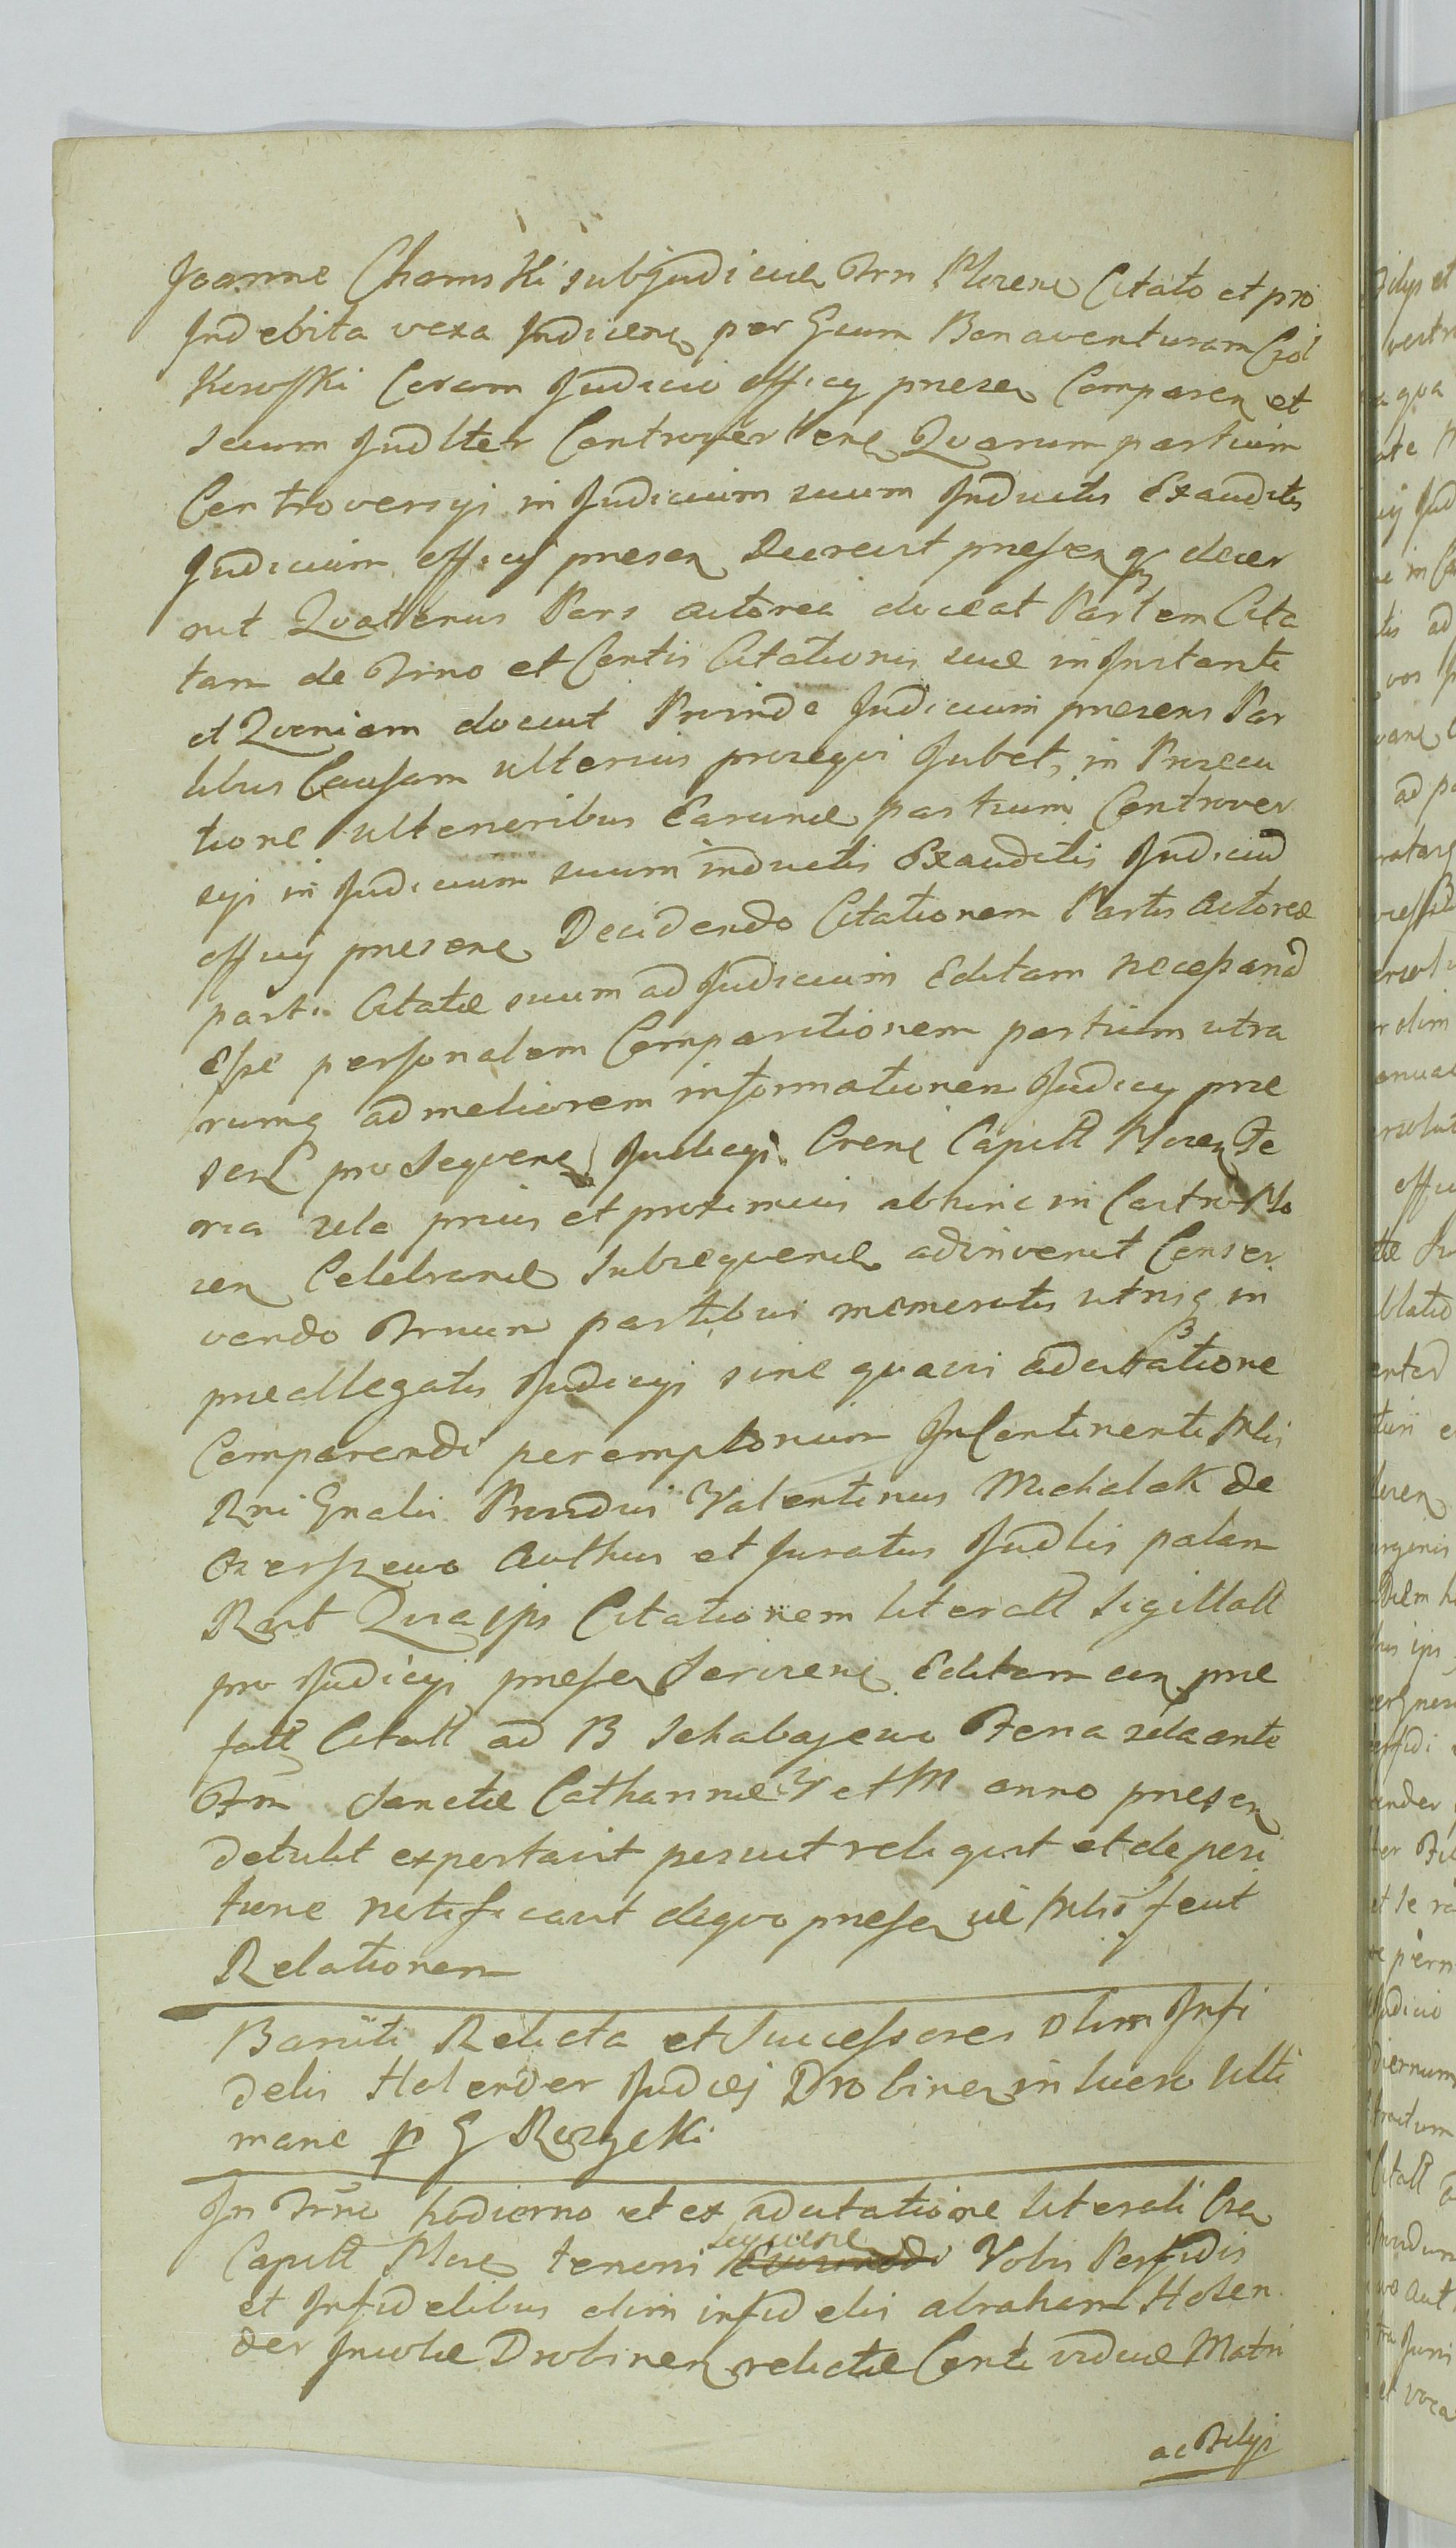 Joanne Chamski subjudicae Trrı Plocen Citato et pro
Indebita vexa Judicene per Gsum Bonaventuram Ciol
Kowsski Coram Judicio officij presen Comparen et
secum Judlter Controverten Quarum partium
Controversijs in Judicium suum Inductis Exauditis
Judicium officij presen Decrevit presenq decer
nit Quattenus Pars actorea doceat Partem Cita
tam de Trno et Contis Citationis suae in Instanti
et Quoniam docuit Proinde Judicium presens Par
tibus Causam ulterius prosequi Jubet, in Prosecu
tione ulterioribus Earund partium Controver
syis in Judicium suum inductis Exauditis Judiciu
officij presens Decidendo Citationem Partis Actoreae
parti Citatae suum ad Judicium Editam necessariā
Esse personalem Comparitionem partium utra
rumq ad meliorem informationem Judicij prae
sen prosequen Judicijs Crens Capitt Plocen Fe
ria 2da prius et proximius abhinc in Castro Plo
cen Celebrand Subsequend adinvenit Conser
vando Trnum partibus memoratis utrisq in
preallegatis Judicijs sine quavis adcitatione
Comparendi peremptorium InContinenti Mtis
Rni Gnalis Providus Valentinus Michalak de
Orszewo Authus et Juratus Judlis palam
Rcvt Quia ips Citationem literall Sigillall
pro Judicijs presen Serviens Editam erq prae
fatt Citatt ad B Schabajewo Feria 2da ante
Ftm Sanctae Catharinae V et M anno presen
detulit exportavit posuit reliquit et de posi
tione notificavit de quo presen ue Mlis fecit
Relationem
Banniti Relicta et Successores Olim Infi
delis Holender Judaej Drobinen in lucro Ulti
mane p G Rczycki
In Trno hodierno et ex adcitatione literali Cra
Capitt Ploce tenoris Sequene Vobis Perfidis
et Infidelibus olim infidelis Abraham Holen
der Incolae Drobinen relictae Conti viduae Matri
ac Filijs